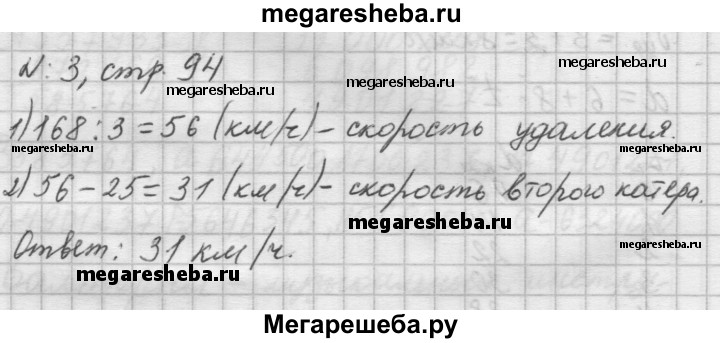 megaresheba.ru
N: 3, стр. 94
megaresheba.ru
megaresheba.ru
megaresheba.ru
1) 168 : 3 = 56 (км/ч) – скорость удаления.
megaresheba.ru
megaresheba.ru
2) 56 – 25 = 31 (км/ч) – скорость второго катера.
megaresheba.ru
Ответ: 31 км/ч.
megaresheba.ru
megaresheba.ru
Мегарешеба.ру